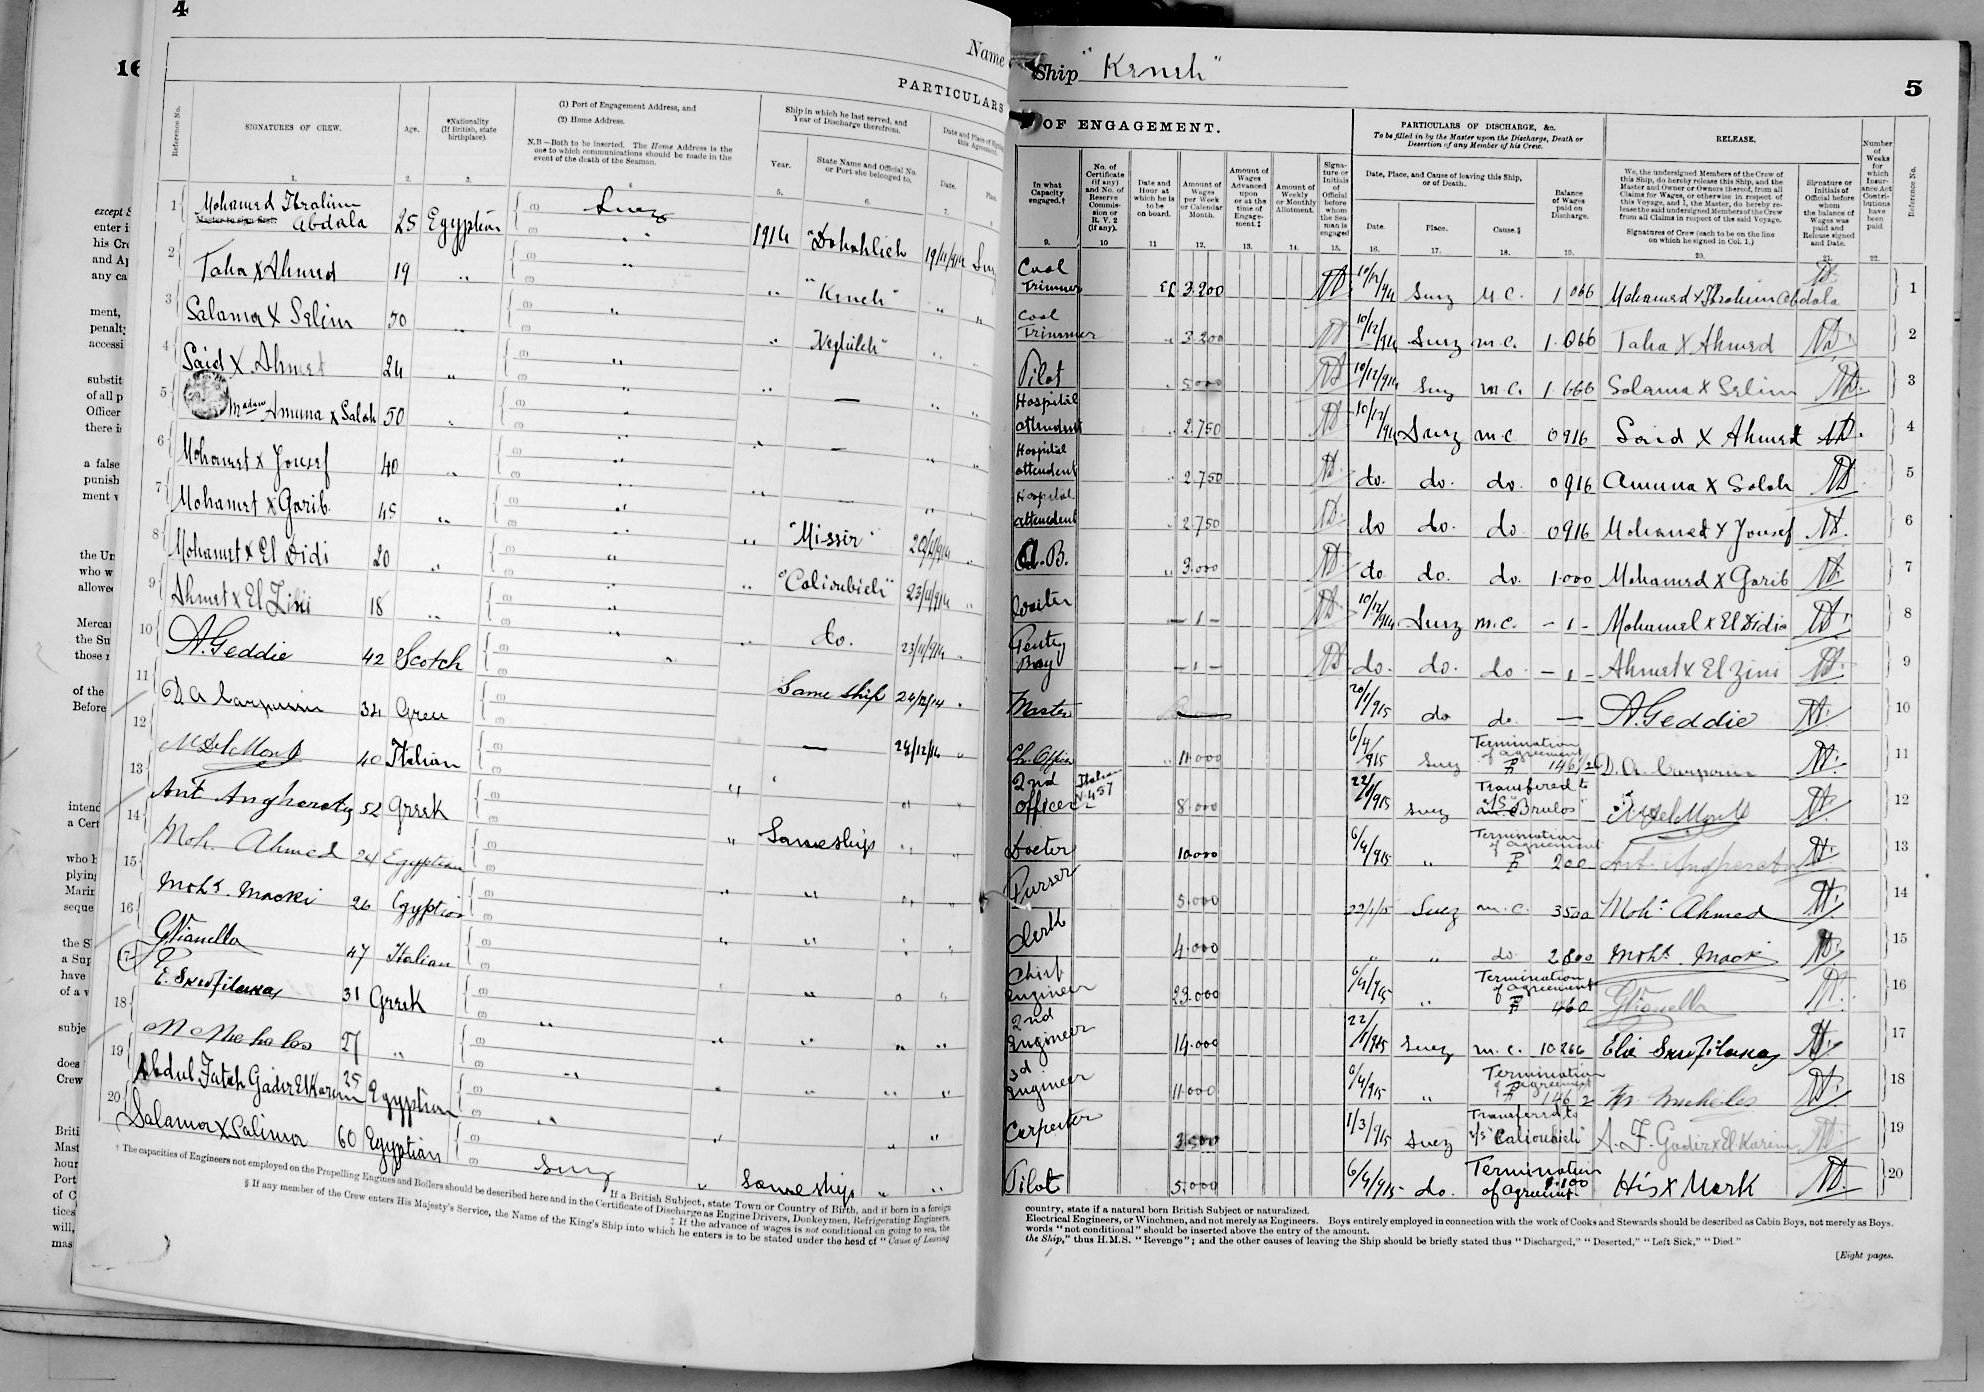 4
Name
PARTICULARS
Reference No.
SIGNATURES OF CREW.
Age.
*Nationality
(If British, state
birthplace).
(1) Port of Engagement Address, and
(2) Home Address.
N.B.—Both to be inserted. The Home Address is the
one to which communications should be made in the
event of the death of the Seaman.
Ship in which he last served, and
Year of Discharge therefrom.
Year.
State Name and Official No.
or Port she belonged to.
Date.
1 Mohamed Ibrahim
Abdala 25 Egyptian Suez 1914 "Dakahlieh" 19/11/914
2 Taha x Ahmed 19 " " "Keneh"
3 Salama x Selim 50 " " "Neghileh"
4 Said x Ahmet 24 " " —
5 Amuna x Salah 50 " " —
6 Mohamet x Yousef 40 " " —
7 Mohamet x Garib 45 " " "Missir"
8 Mohamet x El Didi 20 " " "Calioubieh" 23/11/914
9 Ahmet x El Zini 18 " " do. 23/11/914
10 A. Geddie 42 Scotch Same ship 24/12/14
11 34 — 24/12/14
12 40 Italian
13 52 Greek " Same ship
14 Moh. Ahmed 24 Egyptian " "
15 Moht. Macki 26 Egyptian " "
16 G Vianello 47 Italian "
17 31 Greek " "
18 27 " " "
19 Abdul Fatah Gadir El Karem 25 Egyptian " "
20 Salama x Salima 60 Egyptian Suez " Same ship
If a British Subject, state Town or Country of Birth, and if born in a foreign
† The capacities of Engineers not employed on the Propelling Engines and Boilers should be described here and in the Certificate of Discharge as Engine Drivers, Donkeymen, Refrigerating Engineers,
‡ If the advance of wages is not conditional on going to sea, the
§ If any member of the Crew enters His Majesty's Service, the Name of the King's Ship into which he enters is to be stated under the head of "Cause of Leaving
Ship "Keneh"
5
OF ENGAGEMENT.
In what
Capacity
engaged.†
No. of
Certificate
(if any)
and No. of
Reserve
Commis-
sion or
R. V. 2
(if any).
Date and
Hour at
which he is
to be
on board.
Amount of
Wages
per Week
or Calendar
Month.
Amount of
Wages
Advanced
upon
or at the
time of
Engage-
ment.‡
Amount of
Weekly or
Monthly
Allotment.
Signa-
ture or
Initials
of
Official
before
whom
the Sea-
man is
engaged
PARTICULARS OF DISCHARGE, &c.
To be filled in by the Master upon the Discharge, Death or
Desertion of any Member of his Crew.
Date, Place, and Cause of leaving this Ship,
or of Death.
Date.
Place.
Cause.§
Balance
of Wages
paid on
Discharge.
RELEASE.
We, the undersigned Members of the Crew of
this Ship, do hereby release this Ship, and the
Master and Owner or Owners thereof, from all
Claims for Wages, or otherwise in respect of
this Voyage, and I, the Master, do hereby re-
lease the said undersigned Members of the Crew
from all Claims in respect of the said Voyage.
Signatures of Crew (each to be on the line
on which he signed in Col. 1.)
Signature or
Initials of
Official before
whom
the balance of
Wages was
paid and
Release signed
and Date.
Number
of
Weeks
for
which
Insur-
ance Act
Contri-
butions
have
been
paid.
Reference No.
9. 10 11 12. 13. 14. 15. 16. 17. 18. 19. 20. 21. 22.
Coal
Trimmer 3.200 10/12/914 Suez M.C. 1 066 Mohamed x Ibrahim Abdala 1
Coal
Trimmer 3.200 10/12/914 Suez m.c. 1.066 Taha x Ahmed 2
Pilot 5000 10/12/914 Suez m.c. 1 666 Salama x Selim 3
Hospital
attendent 2.750 10/12/914 Suez m.c 0916 Said x Ahmed 4
Hospital
attendent 2.750 do. do. do. 0916 Amuna x Salah 5
Hospital
attendent 2.750 do do. do 0916 Mohamed x Yousef 6
A.B. 3.000 do do. do. 1.000 Mohamed x Garib 7
Waiter — 1 — 10/12/914 Suez m.c. — 1 — Mohamed x El Didi 8
Pentry
Boy — 1 — do. do. do — 1 — Ahmet x El Zini 9
Master 20/1/915 do do — A. Geddie 10
Ch. Officer 11.000 6/4/915 Suez Termination
of agreement 11
2nd
Officer Italian
No 457 8.000 22/1/915 Suez Transfered to
S/S "Brulos" 12
Doctor 10.000 6/4/915 " Termination
of agreement
200 13
Purser 5.000 22/1/15 Suez m.c. 3500 Moht Ahmed 14
Clerk 4.000 " " do 2800 Moht. Macki 15
Chief
Engineer 23.000 6/4/915 " Termination
of agreement
460 G Vianello 16
2nd
Engineer 14.000 22/1/915 Suez m.c. 10.266 17
3rd
Engineer 11.000 6/4/915 " Termination
of agreement 18
Carpenter 3.500 1/3/915 Suez Transferred to
S/S "Calioubieh" A. F. Gadir x El Karem 19
Pilot 5.000 6/4/915 do. Termination
of agreement His x Mark 20
country, state if a natural born British Subject or naturalized.
Electrical Engineers, or Winchmen, and not merely as Engineers. Boys entirely employed in connection with the work of Cooks and Stewards should be described as Cabin Boys, not merely as Boys.
words "not conditional" should be inserted above the entry of the amount.
the Ship," thus H.M.S. "Revenge"; and the other causes of leaving the Ship should be briefly stated thus "Discharged," "Deserted," "Left Sick," "Died."
[Eight pages.